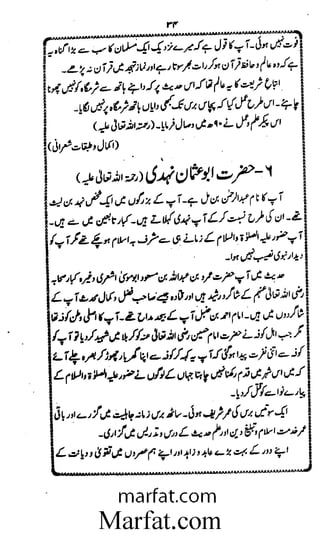 ۳۴
فوت نہیں ہوئی۔ آپ کا قول ہے کہ میرے نزدیک ایک مسلمان کا سب سے بڑا گناہ یہ
ہے کہ وہ عالم و حافظ قرآن ہو کر رات بھر سوتا رہے اور نماز تہجد میں قرآن نہ پڑھے۔
اتباع شریعت کا یہ عالم تھا کہ اس حدیث پر کہ داہنے ہاتھ سے شرمگاہ کو نہیں چھونا
چاہئے۔ اس طرح عمل کیا کہ پچاس برس تک بھی دایاں ہاتھ شرمگاہ پر نہیں لگایا۔
اس پیکر علم و عمل نے ۹۰ھ میں وصال فرمایا۔ (رحمۃ اللہ تعالیٰ علیہ)
(اکمال و طبقات شعرانی)
۶- حضرت ابو عثمان نہدی (رحمۃ اللہ تعالیٰ علیہ)
آپ کا نام عبدالرحمٰن بن مل ہے۔ آپ کے بزرگوں میں ایک شخص نہد بن لیث
تھے۔ ان کی طرف نسبت کر کے آپ نہدی کہلاتے ہیں۔ کبار تابعین میں سے ہیں۔
آپ حضور علیہ الصلوٰۃ والسلام کے زمانے ہی سے مشرف بہ اسلام ہو چکے تھے مگر آپ کو
دیدار نبوی نصیب نہیں ہوا۔
حدیث میں آپ حضرت عمر و عبداللہ بن مسعود ابو موسیٰ اشعری وغیرہ کبار صحابہ
رضی اللہ تعالیٰ عنہم کے شاگرد رشید ہیں اور قتادہ جیسے صاحب فضل و کمال محدث آپ کے
شاگردوں میں ہیں۔ امام احمد بن حنبل آپ کے بڑے مداح تھے۔ آپ کا اصلی وطن کوفہ تھا
مگر جب اہل کوفہ نے حضرت امام حسین رضی اللہ تعالیٰ عنہ کو کربلا میں شہید کر دیا تو آپ کو
کوفہ سے اتنی نفرت پیدا ہو گئی کہ آپ یہ کہہ کر کوفہ سے اپنا گھر بار چھوڑ کر بصرہ چلے آئے
کہ میں اس شہر میں قدم رکھنا نہیں چاہتا جہاں کے لوگوں نے حضور علیہ الصلوٰۃ والسلام کے
پیارے نواسے کو قتل کر دیا۔
ایک سو تیس برس کی عمر شریف ہوئی۔ ساٹھ برس زمانہ جاہلیت میں گزرے اور باقی
عمر خدمت اسلام و تبلیغ دین اور علم حدیث کے درس و تدریس میں گزاری۔
اپنے دور کے بہت بڑے عابد و زاہد اور اپنے ہم عصروں میں تقویٰ و دیانت کے
marfat.com
Marfat.com